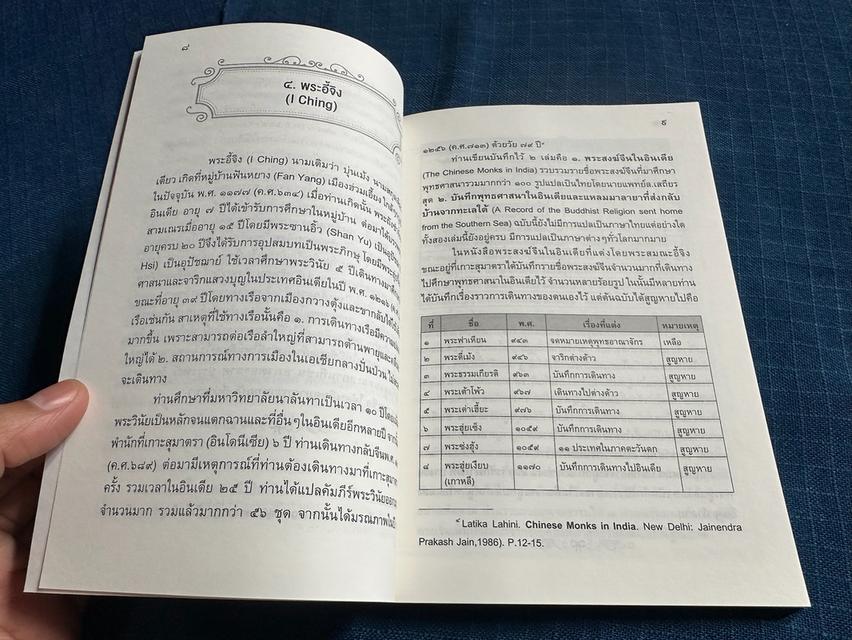 ๘
๔. พระอี้จิง
(I Ching)
พระอี้จิง (I Ching) นามเดิมว่า
เดียว เกิดที่หมู่บ้านฟันหยาง (Fan Yang)
ในปัจจุบัน พ.ศ. ๑๑๗๗ (ค.ศ.๖๓๔) เมื่อท่านเกิดนั้น
อินเดีย อายุ ๗ ปีได้เข้ารับการศึกษาในหมู่บ้าน ต่อมาได้
สามเณรเมื่ออายุ ๑๕ ปีโดยมีพระซานอิ้ว (Shan Yu)
อายุครบ ๒๐ ปีจึงได้รับการอุปสมบทเป็นพระภิกษุ โดยมีพระ
Hsi) เป็นอุปัชฌาย์ ใช้เวลาศึกษาพระวินัย ๕ ปีเดินทางมา
ศาสนาและจาริกแสวงบุญในประเทศอินเดียในปี พ.ศ.
ขณะที่อายุ ๓๙ ปีโดยทางเรือจากเมืองกวางตุ้งและขากลับ
เรือเช่นกัน สาเหตุที่ใช้ทางเรือนั้นคือ ๑. การเดินทางเรือมีความ
มากขึ้น เพราะสามารถต่อเรือลำใหญ่ที่สามารถต้านพายุและ
ใหญ่ได้ ๒. สถานการณ์ทางการเมืองในเอเซียกลางปั่นป่วน
จะเดินทาง
ท่านศึกษาที่มหาวิทยาลัยนาลันทาเป็นเวลา ๑๐ ปีโดย
พระวินัยเป็นหลักจนแตกฉานและที่อื่นๆในอินเดียอีกหลายปี
พำนักที่เกาะสุมาตรา (อินโดนีเซีย) ๖ ปี ท่านเดินทางกลับจีนพ.ศ.
(ค.ศ.๖๘๙) ต่อมามีเหตุการณ์ที่ท่านต้องเดินทางมาที่เกาะ
ครั้ง รวมเวลาในอินเดีย ๒๕ ปี ท่านได้แปลคัมภีร์พระวินัย
จำนวนมาก รวมแล้วมากกว่า ๕๖ ชุด จากนั้นได้มรณภาพ
๙
๑๒๕๖ (ค.ศ.๗๑๓) ด้วยวัย ๗๙ ปี
ท่านเขียนบันทึกไว้ ๒ เล่มคือ ๑. พระสงฆ์จีนในอินเดีย
(The Chinese Monks in India) รวบรวมรายชื่อพระสงฆ์จีนที่มาศึกษา
พุทธศาสนารวมมากกว่า ๑๐๐ รูปแปลเป็นไทยโดยนายแพทย์ล.เสถียร
สุต ๒. บันทึกพุทธศาสนาในอินเดียและแหลมมาลายาที่ส่งกลับ
บ้านจากทะเลใต้ (A Record of the Buddhist Religion sent home
from the Southern Sea) ฉบับนี้ยังไม่มีการแปลเป็นภาษาไทยแต่อย่างใด
ทั้งสองเล่มนี้ยังอยู่ครบ มีการแปลเป็นภาษาต่างๆทั่วโลกมากมาย
ในหนังสือพระสงฆ์จีนในอินเดียที่แต่งโดยพระสมณะอี้จิง
ขณะอยู่ที่เกาะสุมาตราได้บันทึกรายชื่อพระสงฆ์จีนจำนวนมากที่เดินทาง
ไปศึกษาพุทธศาสนาในอินเดียไว้ จำนวนหลายร้อยรูป ในนั้นมีหลายท่าน
ได้บันทึกเรื่องราวการเดินทางของตนเองไว้ แต่ต้นฉบับได้สูญหายไปคือ
ที่ ชื่อ พ.ศ. เรื่องที่แต่ง หมายเหตุ
๑ พระฟาเหียน ๙๔๓ จดหมายเหตุพุทธอาณาจักร เหลือ
๒ พระตี่เม้ง ๙๔๖ จาริกต่างด้าว สูญหาย
๓ พระธรรมเกียรติ ๙๖๓ บันทึกการเดินทาง สูญหาย
๔ พระเต้าโพ้ว ๙๖๗ เดินทางไปต่างด้าว สูญหาย
๕ พระเต่าเฮี้ยะ ๙๗๖ บันทึกการเดินทาง สูญหาย
๖ พระฮุ่ยเซ็ง ๑๐๕๙ บันทึกการเดินทาง สูญหาย
๗ พระซ่งฮุ้ง ๑๐๕๙ ๑๑ ประเทศในภาคตะวันตก สูญหาย
๘ พระฮุ่ยเงียบ ๑๑๗๐ บันทึกการเดินทางไปอินเดีย สูญหาย
(เกาหลี)
Latika Lahini. Chinese Monks in India. New Delhi: Jainendra
Prakash Jain,1986). P.12-15.